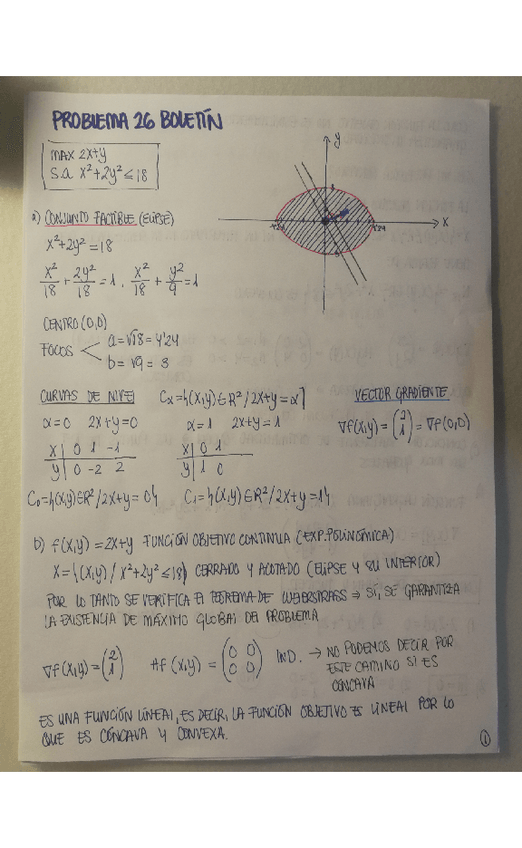 PROBLEMA 26 BOLETÍN
MAX 2x+y
S.a x²+2y² ≤ 18
y
x
a) CONJUNTO FACTIBLE (ELIPSE)
x²+2y² = 18
x²/18 + 2y²/18 = 1 , x²/18 + y²/9 = 1
CENTRO (0,0)
FOCOS < a = √18 = 4'24
b = √9 = 3
CURVAS DE NIVEL
α=0 2x+y=0
x | 0 1 -1
y | 0 -2 2
C₀ = {(x,y)∈R² / 2x+y = 0}
Cα = {(x,y)∈R² / 2x+y = α}
α=1 2x+y=1
x | 0 1
y | 1 0
C₁ = {(x,y)∈R² / 2x+y = 1}
VECTOR GRADIENTE
∇f(x,y) = (2 1) = ∇f(0,0)
b) f(x,y) = 2x+y FUNCIÓN OBJETIVO CONTINUA (EXP. POLINÓMICA)
X = {(x,y) / x²+2y² ≤ 18} CERRADO Y ACOTADO (ELIPSE Y SU INTERIOR)
POR LO TANTO SE VERIFICA EL TEOREMA DE WEIERSTRASS ⇒ SI, SE GARANTIZA
LA EXISTENCIA DE MÁXIMO GLOBAL DEL PROBLEMA
∇f(x,y) = (2 1) Hf(x,y) = (0 0 0 0) IND. → NO PODEMOS DECIR POR
ESTE CAMINO SI ES
CÓNCAVA
ES UNA FUNCIÓN LINEAL, ES DECIR, LA FUNCIÓN OBJETIVO ES LINEAL POR LO
QUE ES CÓNCAVA Y CONVEXA.
1